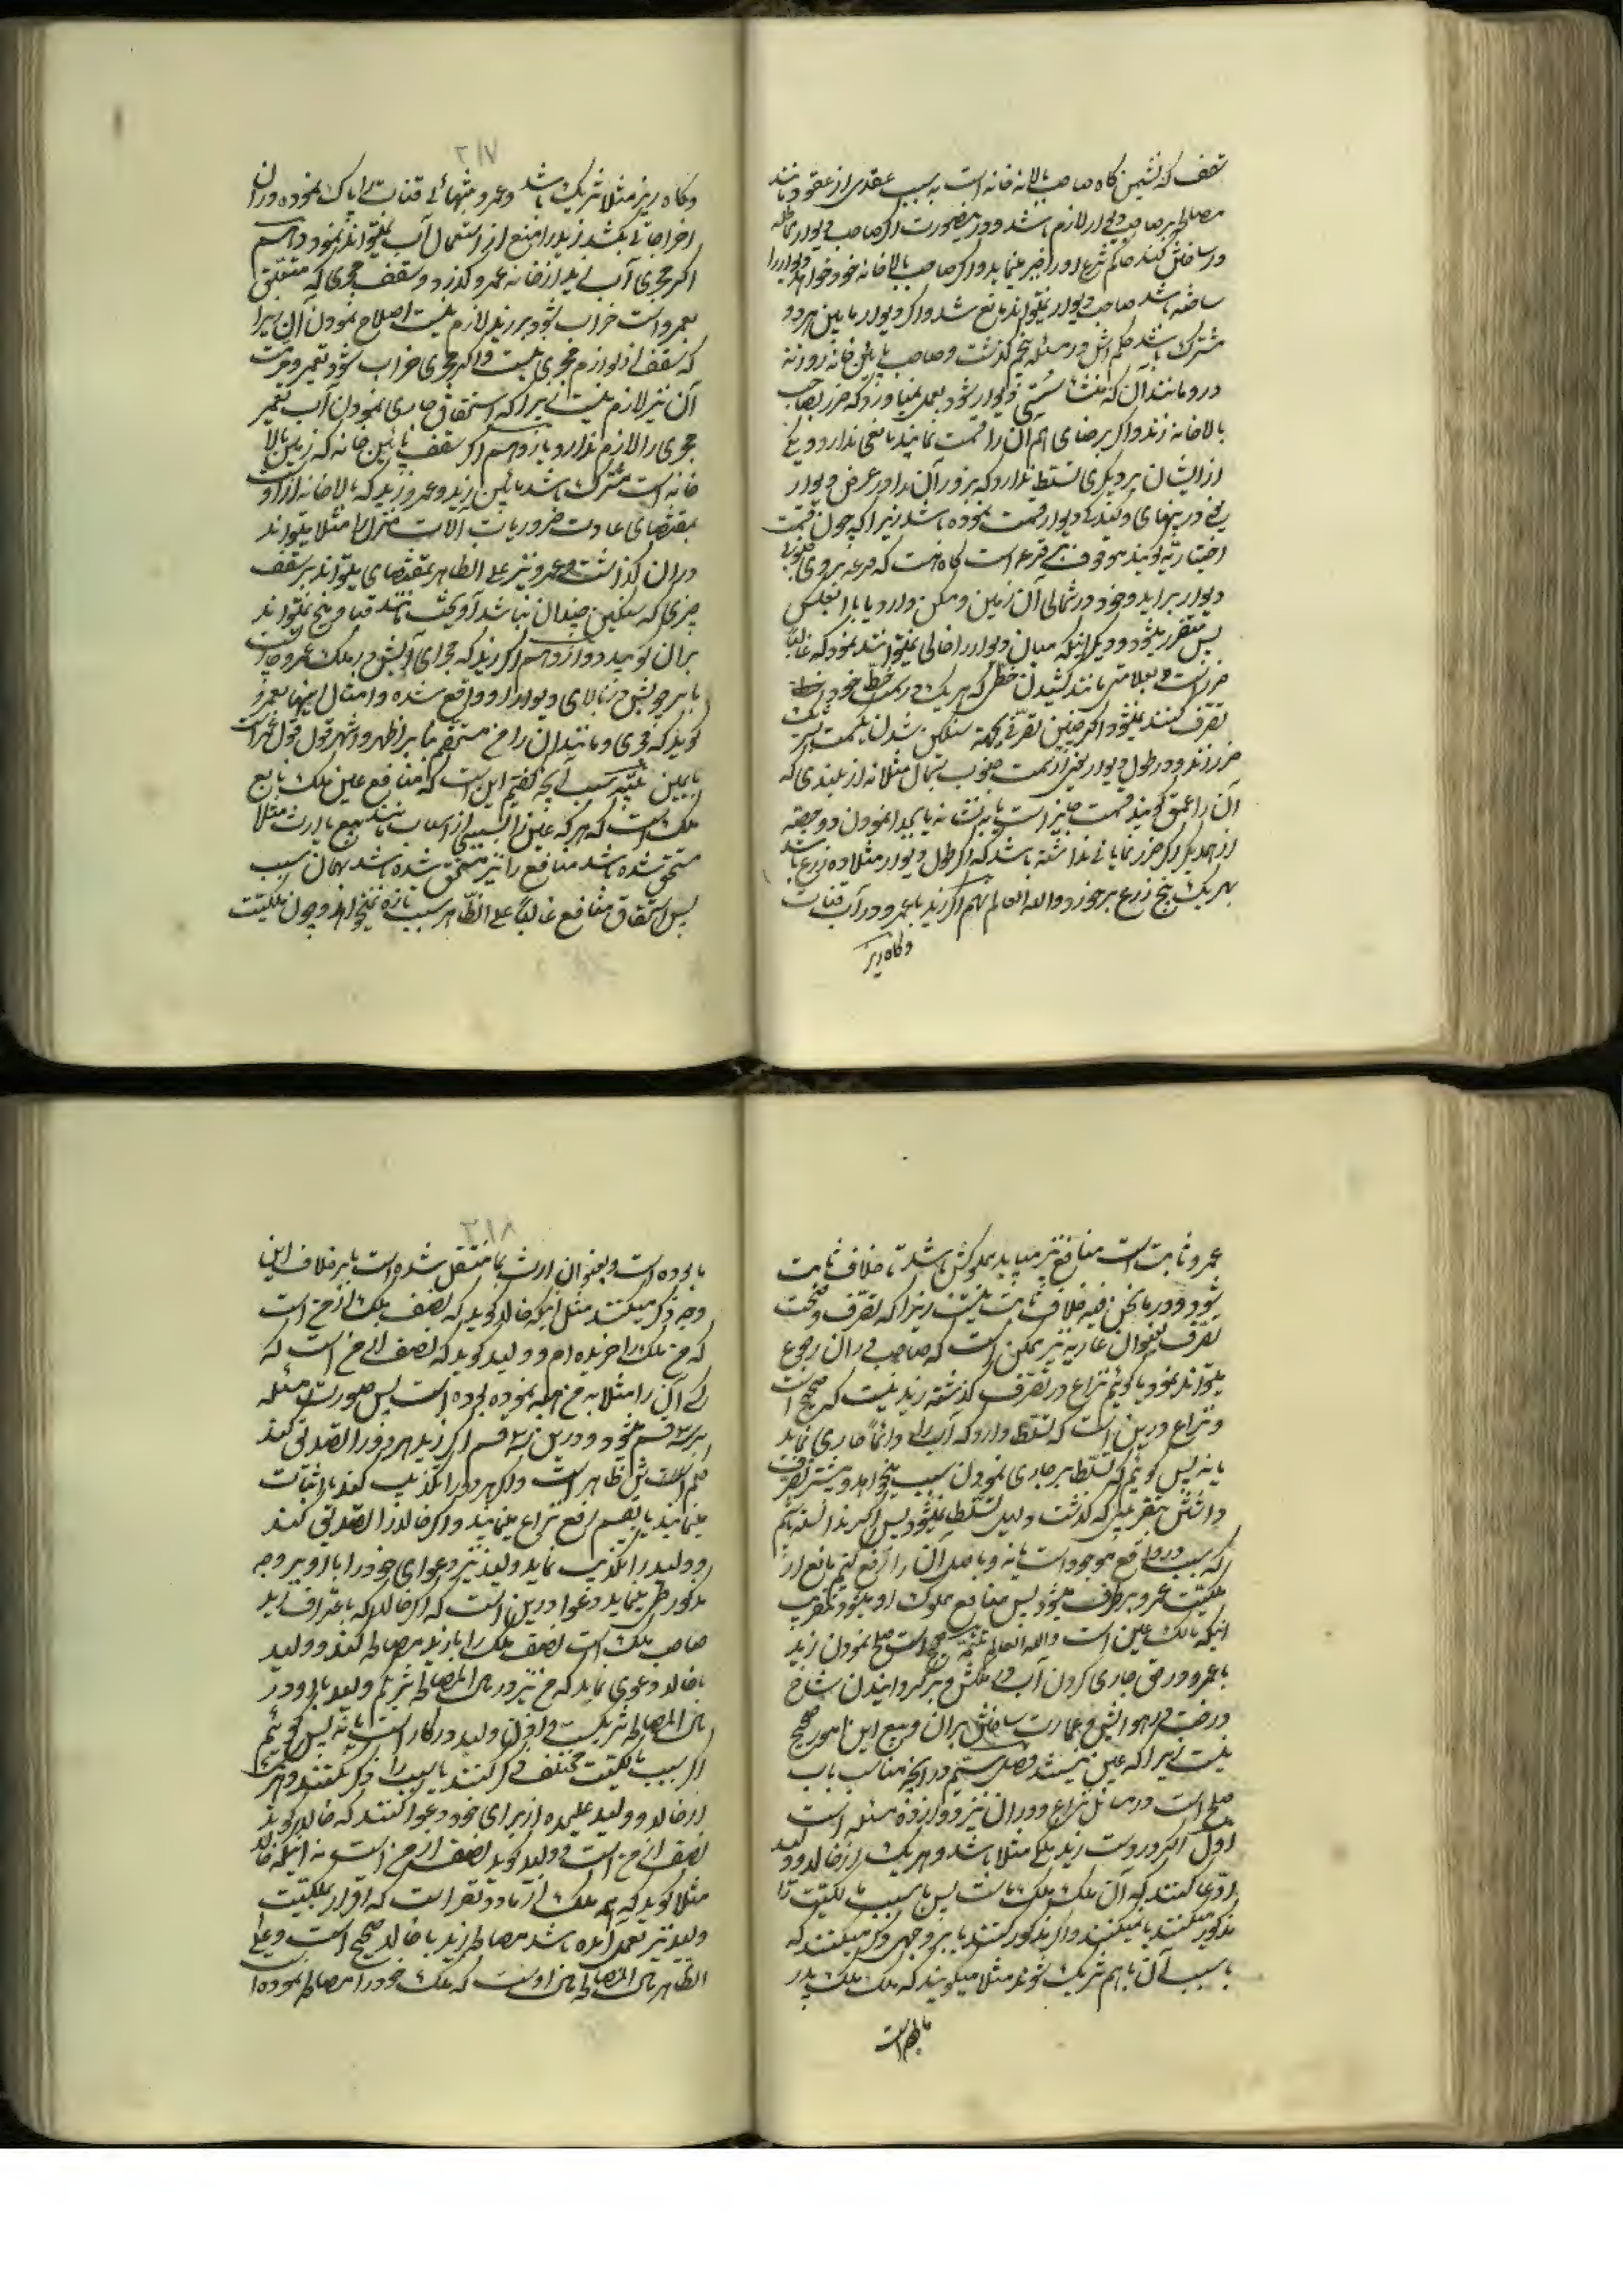 سقف که نشیمن گاه صاحب بالاخانه است به سبب عقدی از عقود مانند
مصالحه بر صاحب دیوار لازم باشد و درینصورت اگر صاحب دیوار مماطله
در ساختن کند حاکم شرع او را جبر مینماید و اگر صاحب بالاخانه خود خواهد دیوار را
ساخته باشد صاحب دیوار نمیتواند مانع شد و اگر دیوار مابین هر دو
مشترک باشد حکم آنش در مسئله پنجم گذشت و صاحب پائین خانه روزنه
در و مانند آن که منشأ سستی دیوار شود بعمل نمیآورد که ضرر بصاحب
بالاخانه زند و اگر برضای هم آن را قسمت نمایند مانعی ندارد و یکی
از ایشان بر دیگری تسلط ندارد که بزور آن را در عرض دیوار
دیوار برآید و خود در شمالی آن زمین و مسکن دارد یا بالعکس
پس متضرر میشود و دیگر اینکه میان دیوار را خالی نمیتوانند نمود که غالباً
ضرر است و بعلامتی مانند کشیدن خطی که هر یک در سمت خط خود
تصرف کنند نمیشود اگر چنین تصرفی بجهة سنگین شدن یکسمت
ضرر زند و در طول دیوار یعنی از سمت جنوب بشمال مثلا نه از بلندی که
آن را عمق گویند قسمت جایز است یا به نشانه یا بجدا نمودن دو حصه
از همدیگر اگر ضرر نمایانی نداشته باشد که اگر طول دیوار مثلا ده زرع باشد
بهر یک پنج زرع برخورد والله العالم نهم اگر زید با عمرو در آب قنات
و کاه ریز
۲۱۷
و کاه ریز مثلا شریک باشد و عمرو بتنهائی قنات را پاک نموده و در آن
اخراجاتی بکشد زید را منع از استعمال آب نمیتواند نمود دهم
اگر مجری آب زید از خانه عمرو گذرد و سقف مجری که متعلق
بعمرو است خراب شود بر زید لازم نیست اصلاح نمودن آن زیرا
که سقف از لوازم مجری نیست و اگر مجری خراب شود تعمیر و مرمت
آن نیز لازم نیست زیرا که استحقاق جاری نمودن آب تعمیر
مجری را لازم ندارد یازدهم اگر سقف پائین خانه که زمین بالا
خانه است مشترک باشد مابین زید و عمرو زید که بالاخانه از اوست
بمقتضای عادت ضروریات آلات منزل را مثلا میتواند
در آن گذاشت و عمرو نیز علی الظاهر بمقتضای میتواند بر سقف
چیزی که سنگین چندان نباشد آویخت مانند قبا و میخ نمیتواند
بر آن کوبید دوازدهم اگر زید که مجرای آبش در ملک عمرو جاریست
یا سر چوبش در بالای دیوار او واقع شده و امثال اینها بعمرو
گوید که مجری و مانند آن را من مستحقم بنا بر اظهر و اشهر قول قول عمرو است
با یمین تتمه سبب آنچه گفتیم این است که منافع عین ملک تابع
ملک است که هر که عین را بسببی از اسباب مانند بیع یا ارث مثلا
مستحق شده باشد منافع را نیز مستحق شده باشد بهمان سبب
پس استحقاق منافع غالباً علی الظاهر سبب تازه نمیخواهد و چون ملکیت
عمرو ثابت است منافع نیز میباید مملوکش باشد تا خلاف ثابت
شود و در مانحن فیه خلاف ثابت نیست زیرا که تصرف و صحت
تصرف بعنوان عاریه نیز ممکن است که صاحب در آن رجوع
میتواند نمود یا گوئیم نزاع در تصرف گذشته زید نیست که صحیح است
و نزاع درین است که تسلط دارد که آب را دائماً جاری نماید
یا نه پس گوئیم که تسلط بر جاری نمودن سبب میخواهد و بیشتر تصرف
داشتن بتقریبی که گذشت دلیل تسلط نمیشود پس اگر ندانسته باشیم
که سبب در واقع موجود است یا نه و باصل آن را رفع کنیم مانع از
ملکیت عمرو برطرف میشود پس منافع مملوک او میشود بتقریب
اینکه مالک عین است والله العالم تتمه صحیح است صلح نمودن زید
با عمرو در حق جاری کردن آب در ملکش و برگردانیدن شاخ
درخت در هوایش و عمارت ساختن بر آن و بیع این امور صحیح
نیست زیرا که عین نیستند فصل ششم در آنچه مناسب باب
صلح است در مسائل نزاع و در آن نیز دوازده مسئله است
اول اگر در دست زید ملکی مثلا باشد و هر یک از خالد و ولید
ادعا کنند که آن ملک ملک ماست پس یا سبب ملکیت را
مذکور میکنند یا نمیکنند و اگر مذکور کنند یا بر وجهی ذکر میکنند که
بسبب آن با هم شریک شوند مثلا میگویند که ملک ملک پدر
ما بوده است
۲۱۸
ما بوده است و بعنوان ارث بما منتقل شده است یا بر خلاف این
وجه ذکر میکنند مثل اینکه خالد گوید که نصف ملک از من است
که من ملک را خریده ام و ولید گوید که نصف از من است که
کسی آن را مثلا به من هبه نموده بوده است پس صورت مسئله
بر سه قسم میشود و درین سه قسم اگر زید هر دو را تصدیق کند
حکم آنش ظاهر است و اگر هر دو را تکذیب کند یا اثبات
مینمایند یا بقسم رفع نزاع مینمایند و اگر خالد را تصدیق کند
و ولید را تکذیب نماید ولید نیز دعوای خود را با او بر وجه
مذکور طی مینماید و دعوا درین است که اگر خالد که باعتراف زید
صاحب ملک است نصف ملک را با زید مصالحه کند و ولید
با خالد دعوی نماید که من نیز در مال المصالحه شریکم ولید با او در
مال المصالحه شریک است و اذن ولید در کار است یا نه پس گوئیم
اگر سبب ملکیت مختلف ذکر کنند یا سبب را ذکر نکنند و هر یک
از خالد و ولید علیحده از برای خود دعوا کنند که خالد گوید
نصف از من است و ولید گوید نصف از من است نه اینکه خالد
مثلا گوید که همه ملک از ما دو نفر است که اقرار بملکیت
ولید نیز بعمل آمده باشد مصالحه زید با خالد صحیح است و علی
الظاهر مال المصالحه مال اوست که ملک خود را مصالحه نموده